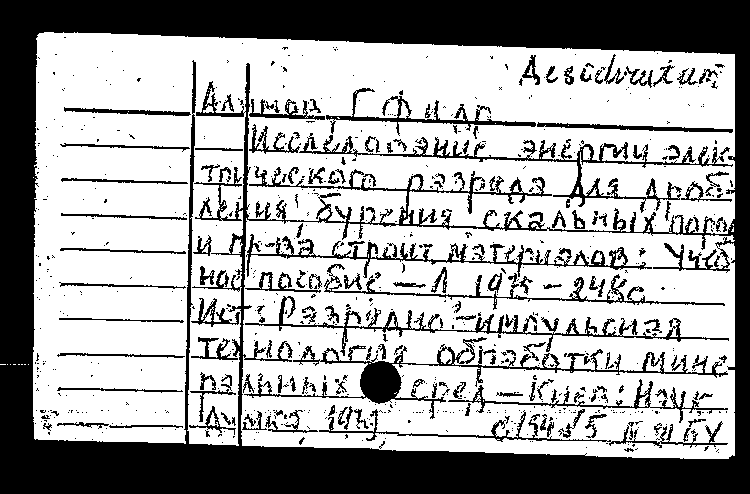 Desideratum
Алимов Г Ф и др
Исследование энергии элек-
трического разряда для дроб-
ления, бурения скальных пород
и пр-ва строит. материалов: Учеб-
ное пособие — Л 1975 - 248с.
Ист: Разрядно-импульсная
технология обработки мине-
ральных сред — Киев: Наук
Думка,